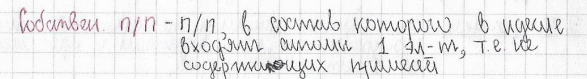 Собствен. п/п - п/п, в состав которого в идеале
входят атомы 1 эл-та, т.е. не
содержащих примесей